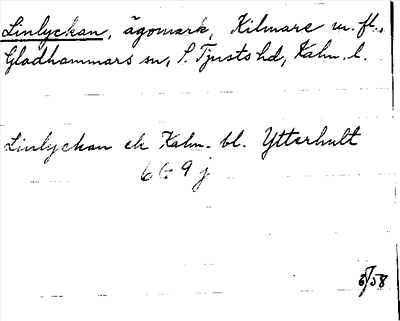 Linlyckan, ägomark, Kilmare m. fl.,
Gladhammars sn, S. Tjusts hd, Kalm. l.
Linlyckan ek Kalm. bl. Ytterhult
6 G 9 j
/58